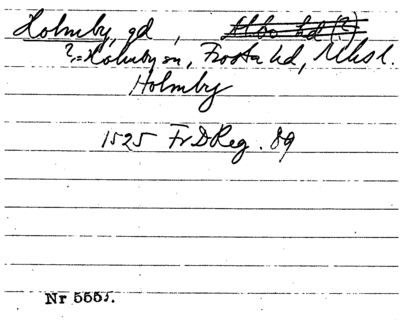 Holmby, gd , Albo hd (?)
? = Holmby sn, Frosta hd, Mhsl.
Holmby
1525 FrDReg. 89
Nr 5555.